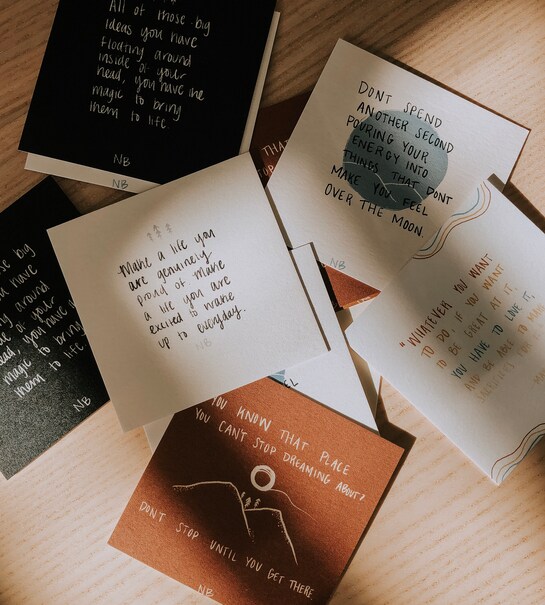 All of those big
ideas you have
floating around
inside of your
head, you have the
magic to bring
them to life.
NB
NB
THA
DONT SPEND
ANOTHER SECOND
POURING YOUR
ENERGY INTO
THINGS THAT DONT
MAKE YOU FEEL
OVER THE MOON.
NB
Make a life you
are genuinely
proud of. Make
a life you are
excited to wake
up to everyday.
NB
those big
have
around
your
head, you have
magic to bring
them to life
NB
"WHATEVER YOU WANT
TO DO, IF YOU WANT
TO BE GREAT AT IT,
YOU HAVE TO LOVE IT,
AND BE ABLE TO MAKE
EL
YOU KNOW THAT PLACE
YOU CAN'T STOP DREAMING ABOUT?
DON'T STOP UNTIL YOU GET THERE.
NB